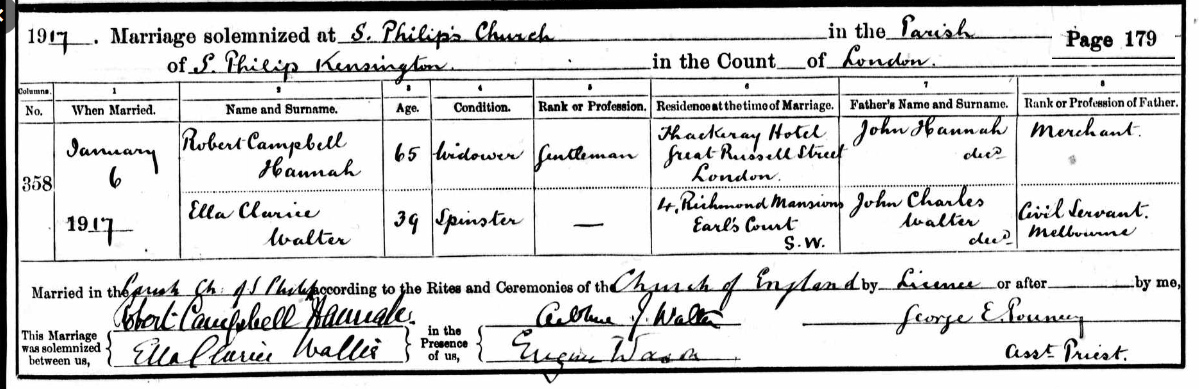 1917. Marriage solemnized at S. Philip's Church in the Parish
Page 179
of S. Philip Kensington. in the Count of London.
Columns. 1 2 3 4 5 6 7 8
No. When Married. Name and Surname. Age. Condition. Rank or Profession. Residence at the time of Marriage. Father's Name and Surname. Rank or Profession of Father.
358
January
6
1917
Robert Campbell
Hannah
65
Widower
Gentleman
Thackeray Hotel
Great Russell Street
London.
John Hannah
decd
Merchant.
Ella Clarice
Walter
39
Spinster
—
4, Richmond Mansions
Earl's Court
S.W.
John Charles
Walter
decd
Civil Servant.
Melbourne
Married in the Parish Ch. of S Philip according to the Rites and Ceremonies of the Church of England by Licence or after by me,
This Marriage
was solemnized
between us,
Robert Campbell Hannah
Ella Clarice Walter
in the
Presence
of us,
J. Walter
George E.
Asst Priest.